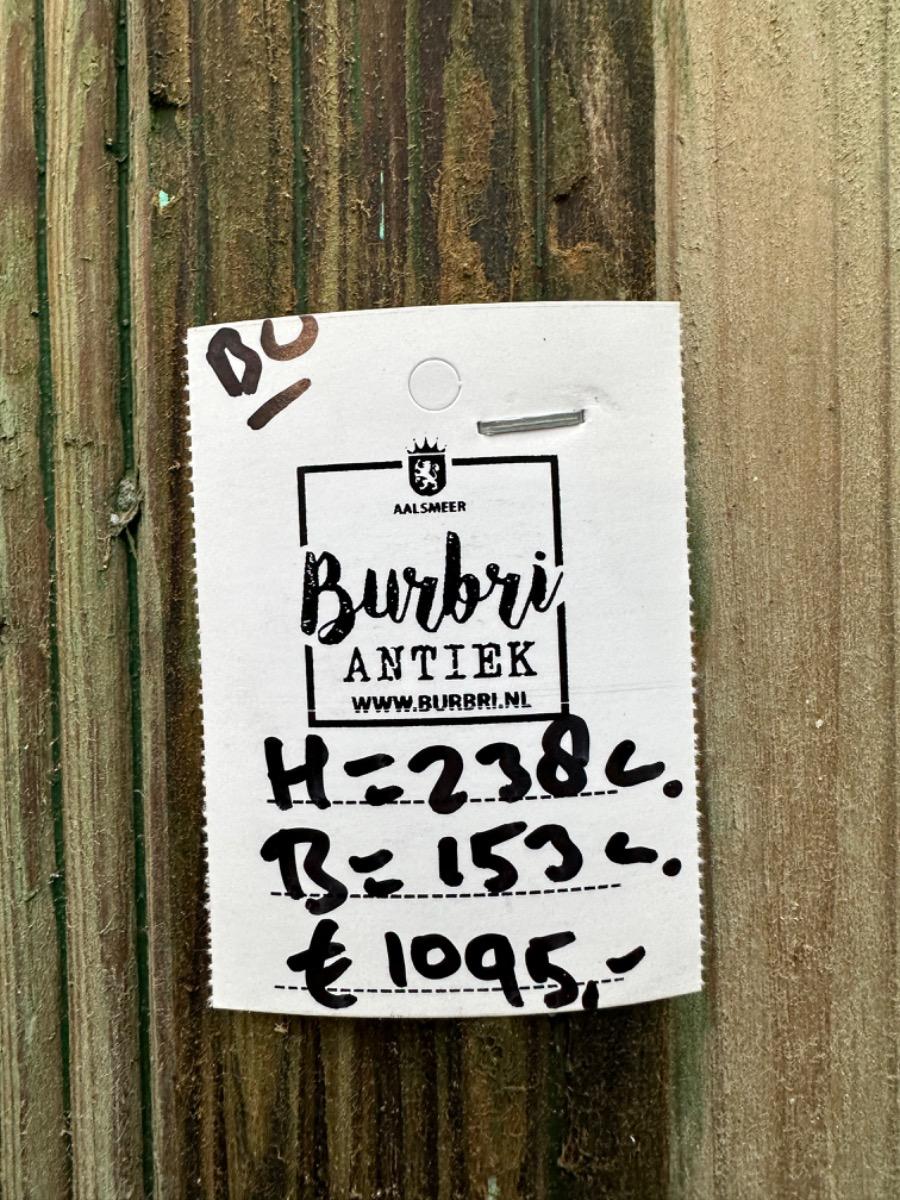 BU
AALSMEER
Burbri
ANTIEK
WWW.BURBRI.NL
H=238c.
B=153c.
€1095,-